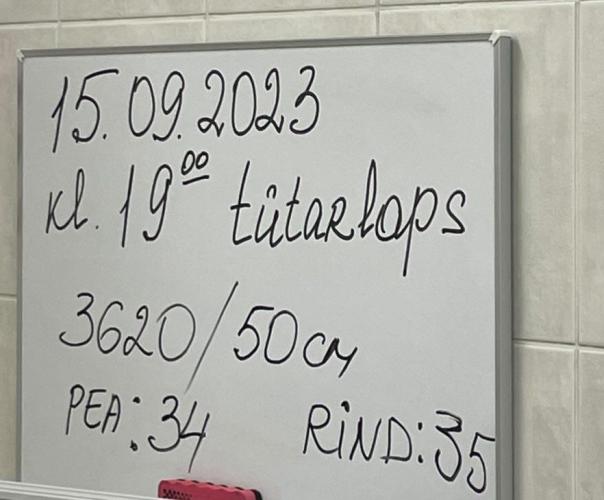 15.09.2023
kl. 19⁰⁰ tütarlaps
3620/50cм
PEA: 34 RiND: 35